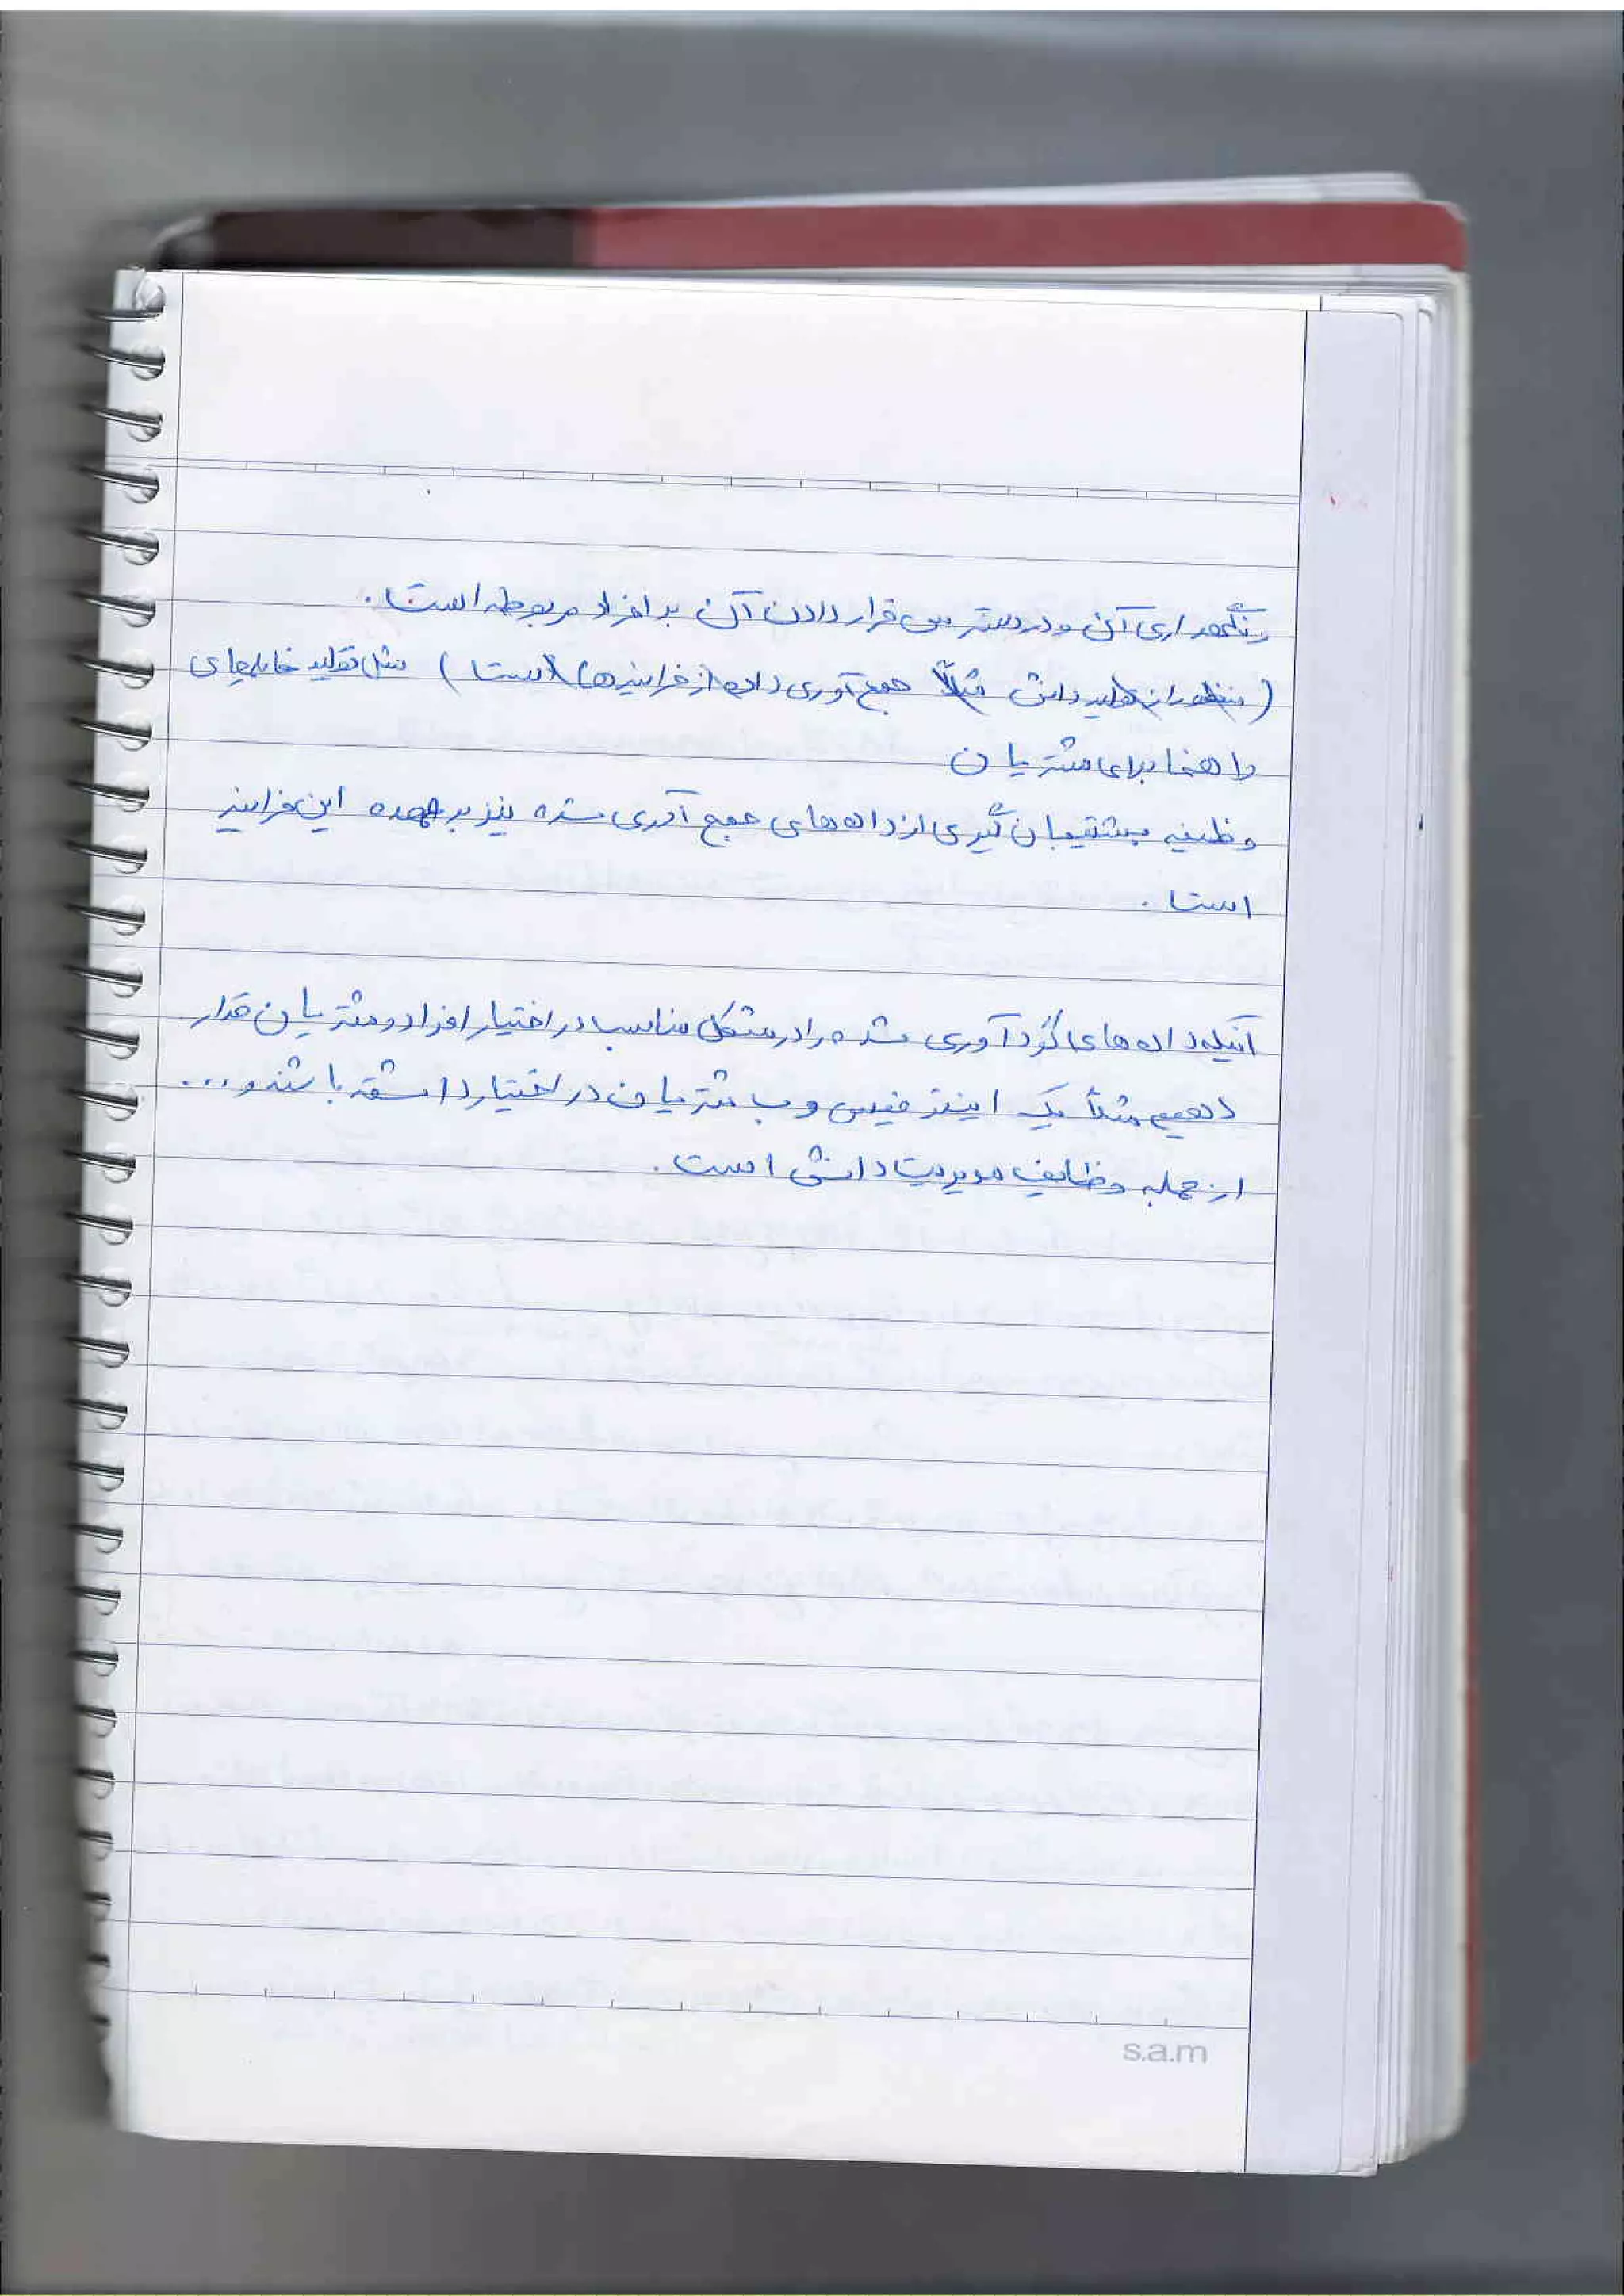 نگهداری آن و در دسترس قرار دادن آن به افراد مربوطه است.
(منظور از تولید دانش مثلاً جمع آوری داده از فرایندها است) مثل تولید فایلهای
راهنما برای مشتریان
وظیفه پشتیبان گیری از داده های جمع آوری شده نیز بر عهده این فرایند
است.
اینکه داده های گردآوری شده را در شکل مناسب در اختیار افراد و مشتریان قرار
دهیم مثلاً یک اینترفیس وب مشتریان در اختیار داشته باشند و...
از جمله وظایف مدیریت دانش است.
s.a.m